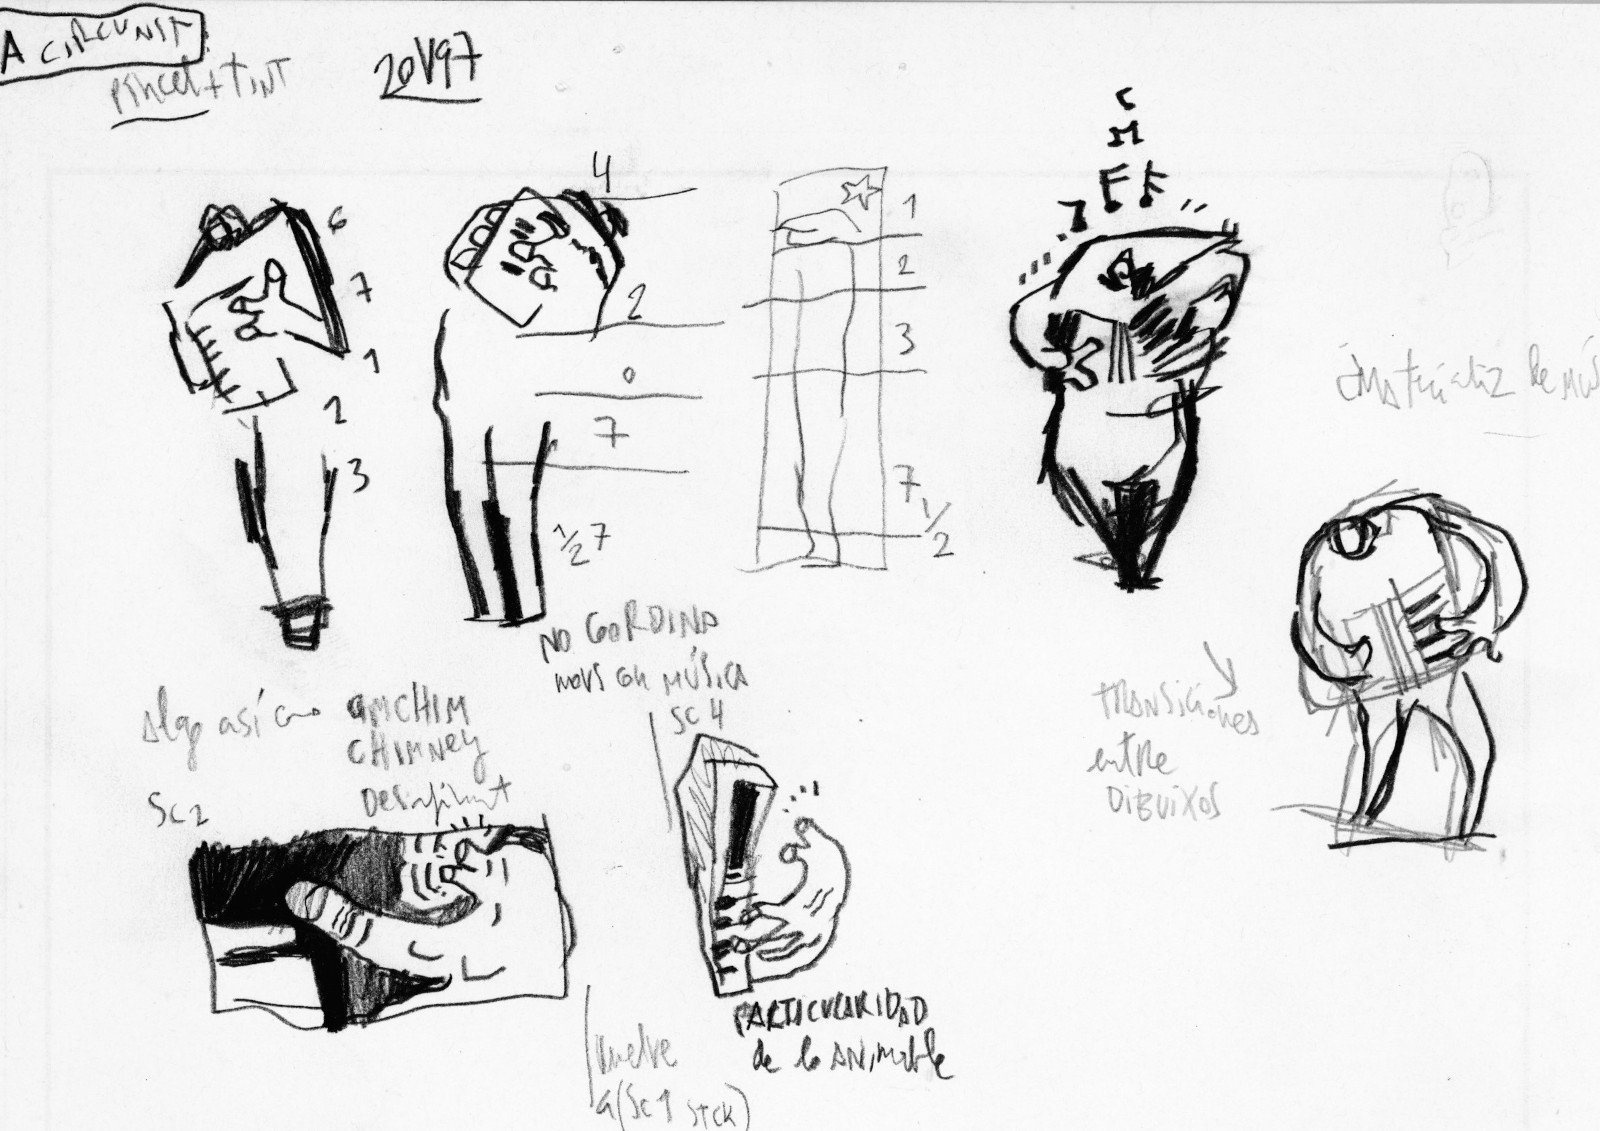 A CIRCUNST
PINCEL + TINT
20V97
4
6
7
1
2
3
2
0
7
1/2 7
1
2
3
7 1/2
NO GORDINA
MÚSICA
Algo así como
CHIMNEY
SC 2
SC 4
de MÚS
TRANSICIONES
entre
DIBUIXOS
PARTICULARIDAD
de lo ANIMABLE
Vuelve
a (SC 1 STCK)